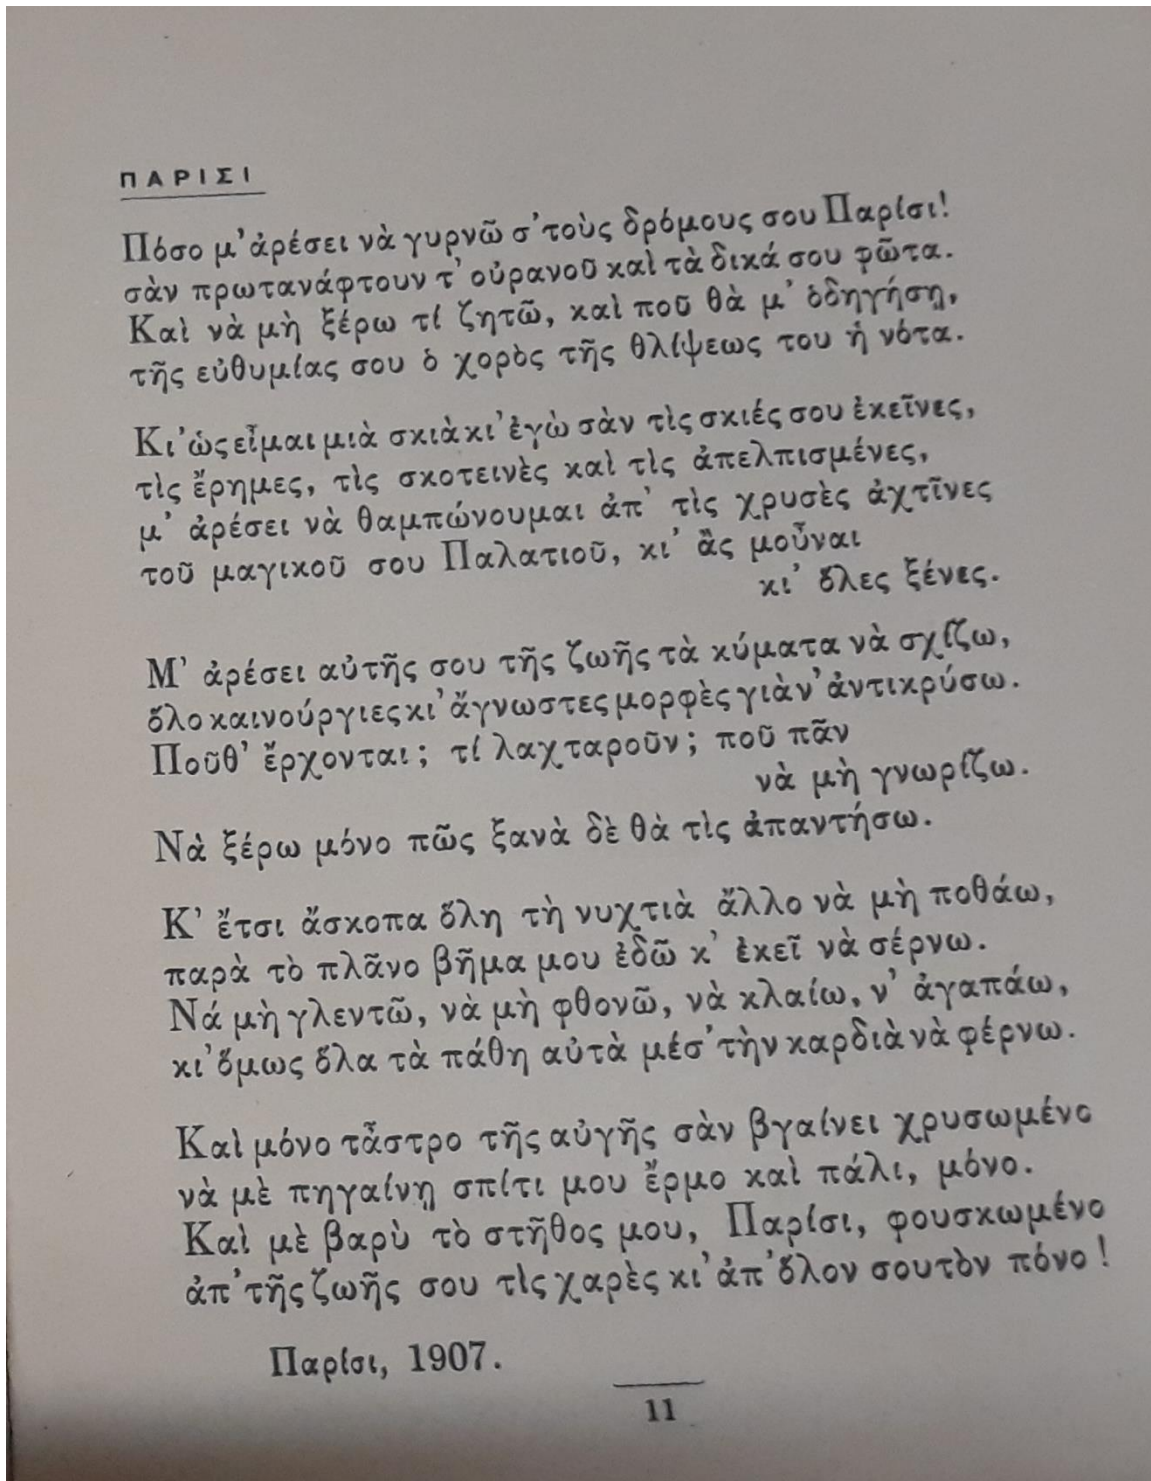 ΠΑΡΙΣΙ
Πόσο μ' ἀρέσει νὰ γυρνῶ σ' τοὺς δρόμους σου Παρίσι!
σὰν πρωτανάφτουν τ' οὐρανοῦ καὶ τὰ δικά σου φῶτα.
Καὶ νὰ μὴ ξέρω τί ζητῶ, καὶ ποῦ θὰ μ' ὁδηγήσῃ,
τῆς εὐθυμίας σου ὁ χορὸς τῆς θλίψεως του ἡ νότα.
Κι' ὡς εἶμαι μιὰ σκιὰ κι' ἐγὼ σὰν τὶς σκιές σου ἐκεῖνες,
τὶς ἔρημες, τὶς σκοτεινὲς καὶ τὶς ἀπελπισμένες,
μ' ἀρέσει νὰ θαμπώνουμαι ἀπ' τὶς χρυσὲς ἀχτῖνες
τοῦ μαγικοῦ σου Παλατιοῦ, κι' ἂς μοὖναι
κι' ὅλες ξένες.
Μ' ἀρέσει αὐτῆς σου τῆς ζωῆς τὰ κύματα νὰ σχίζω,
ὅλο καινούργιες κι' ἄγνωστες μορφὲς γιὰ ν' ἀντικρύσω.
Ποῦθ' ἔρχονται; τί λαχταροῦν; ποῦ πᾶν
νὰ μὴ γνωρίζω.
Νὰ ξέρω μόνο πῶς ξανὰ δὲ θὰ τὶς ἀπαντήσω.
Κ' ἔτσι ἄσκοπα ὅλη τὴ νυχτιὰ ἄλλο νὰ μὴ ποθάω,
παρὰ τὸ πλᾶνο βῆμα μου ἐδῶ κ' ἐκεῖ νὰ σέρνω.
Νά μὴ γλεντῶ, νὰ μὴ φθονῶ, νὰ κλαίω, ν' ἀγαπάω,
κι' ὅμως ὅλα τὰ πάθη αὐτὰ μέσ' τὴν καρδιὰ νὰ φέρνω.
Καὶ μόνο τἆστρο τῆς αὐγῆς σὰν βγαίνει χρυσωμένο
νὰ μὲ πηγαίνῃ σπίτι μου ἔρμο καὶ πάλι, μόνο.
Καὶ μὲ βαρὺ τὸ στῆθος μου, Παρίσι, φουσκωμένο
ἀπ' τῆς ζωῆς σου τὶς χαρὲς κι' ἀπ' ὅλον σου τὸν πόνο!
Παρίσι, 1907.
11